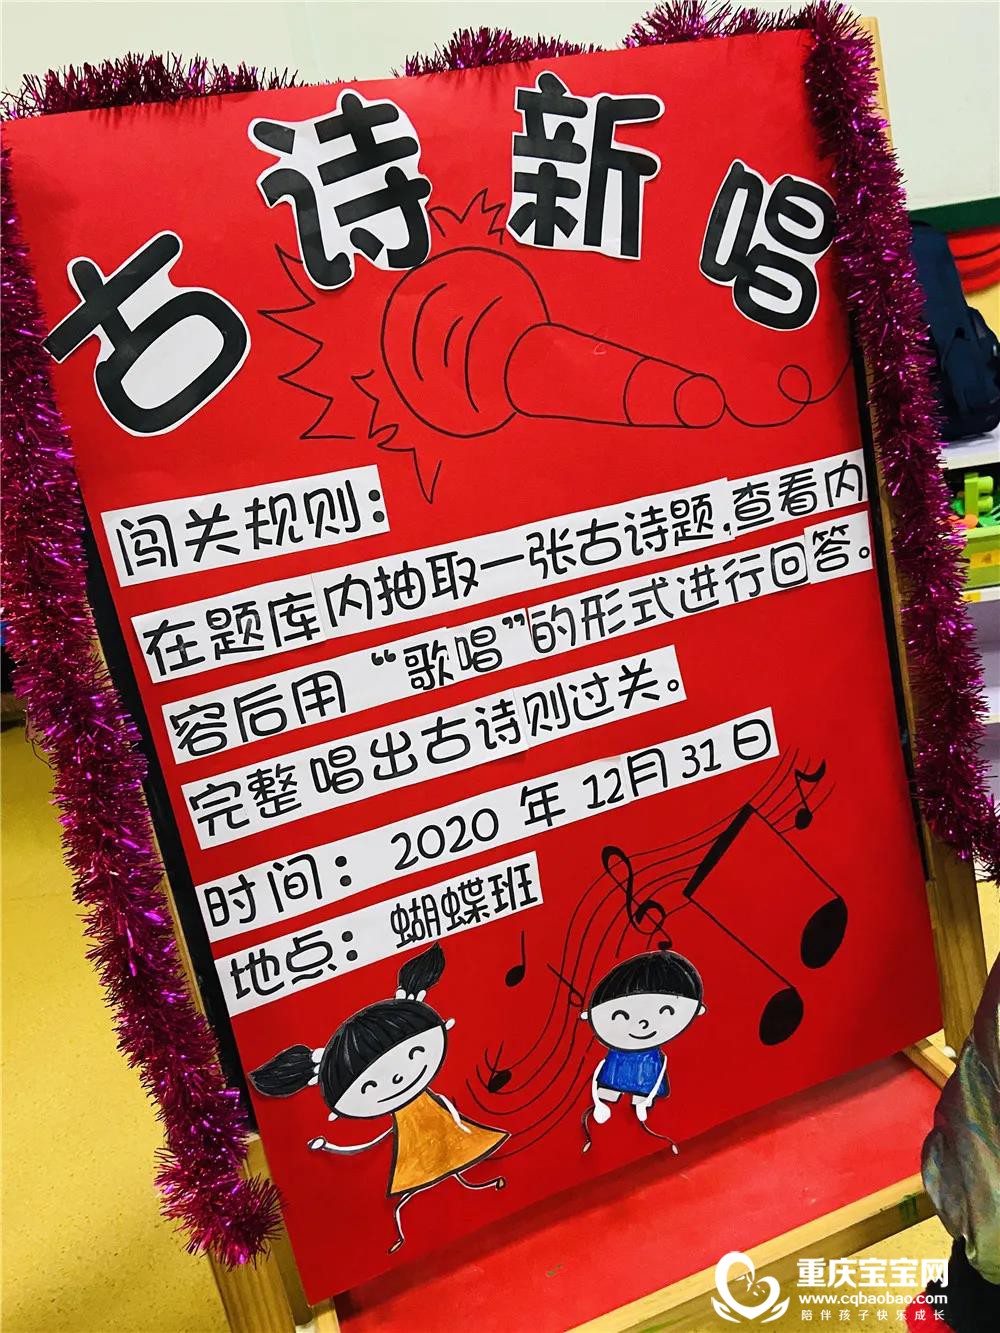 古诗新唱
闯关规则：
在题库内抽取一张古诗题，查看内
容后用“歌唱”的形式进行回答。
完整唱出古诗则过关。
时间：2020年12月31日
地点：蝴蝶班
重庆宝宝网
www.cqbaobao.com
陪伴孩子快乐成长